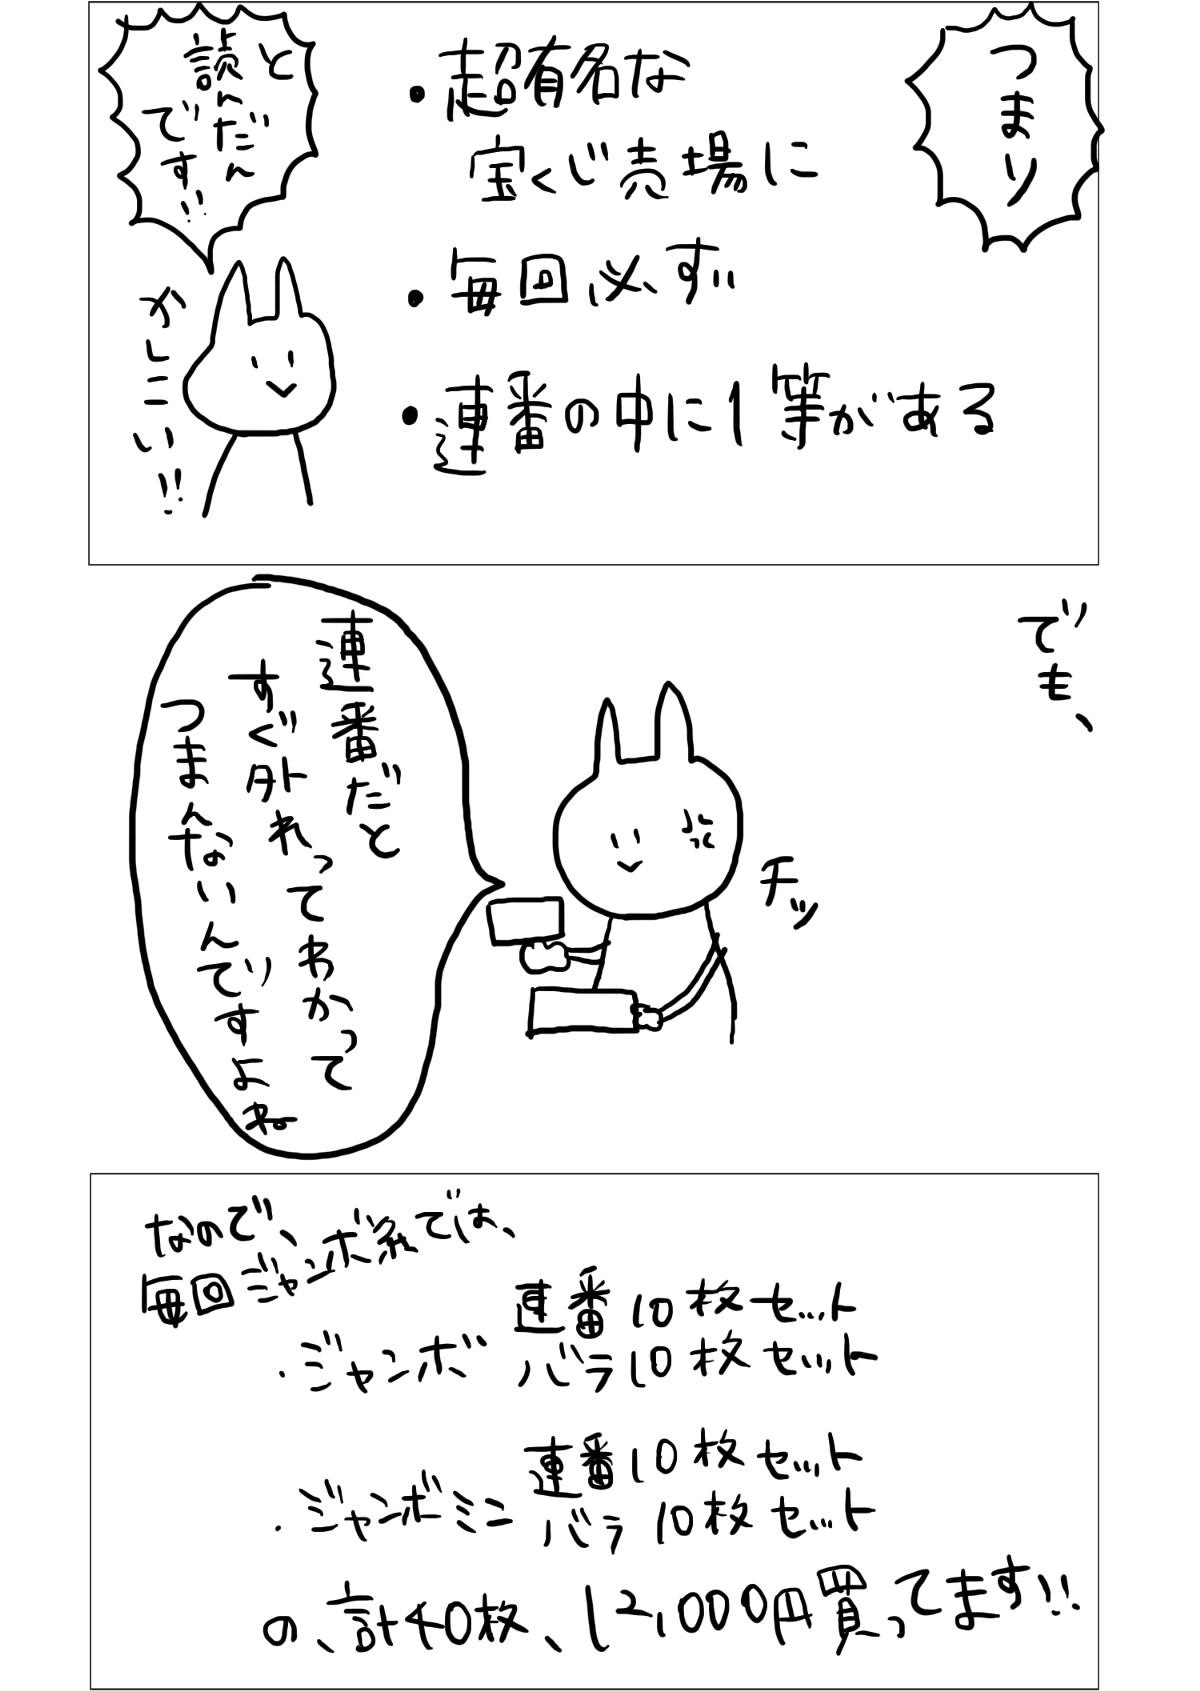 つまり
・超有名な
宝くじ売場に
・毎回必ず
・連番の中に1等がある
と
読んだん
です!!
かしこい!!
でも、
チッ
連番だと
すぐ外れってわかって
つまんないんですよね
なので、
毎回ジャンボ系では、
・ジャンボ 連番10枚セット
バラ10枚セット
・ジャンボミニ 連番10枚セット
バラ10枚セット
の、計40枚、12,000円買ってます!!